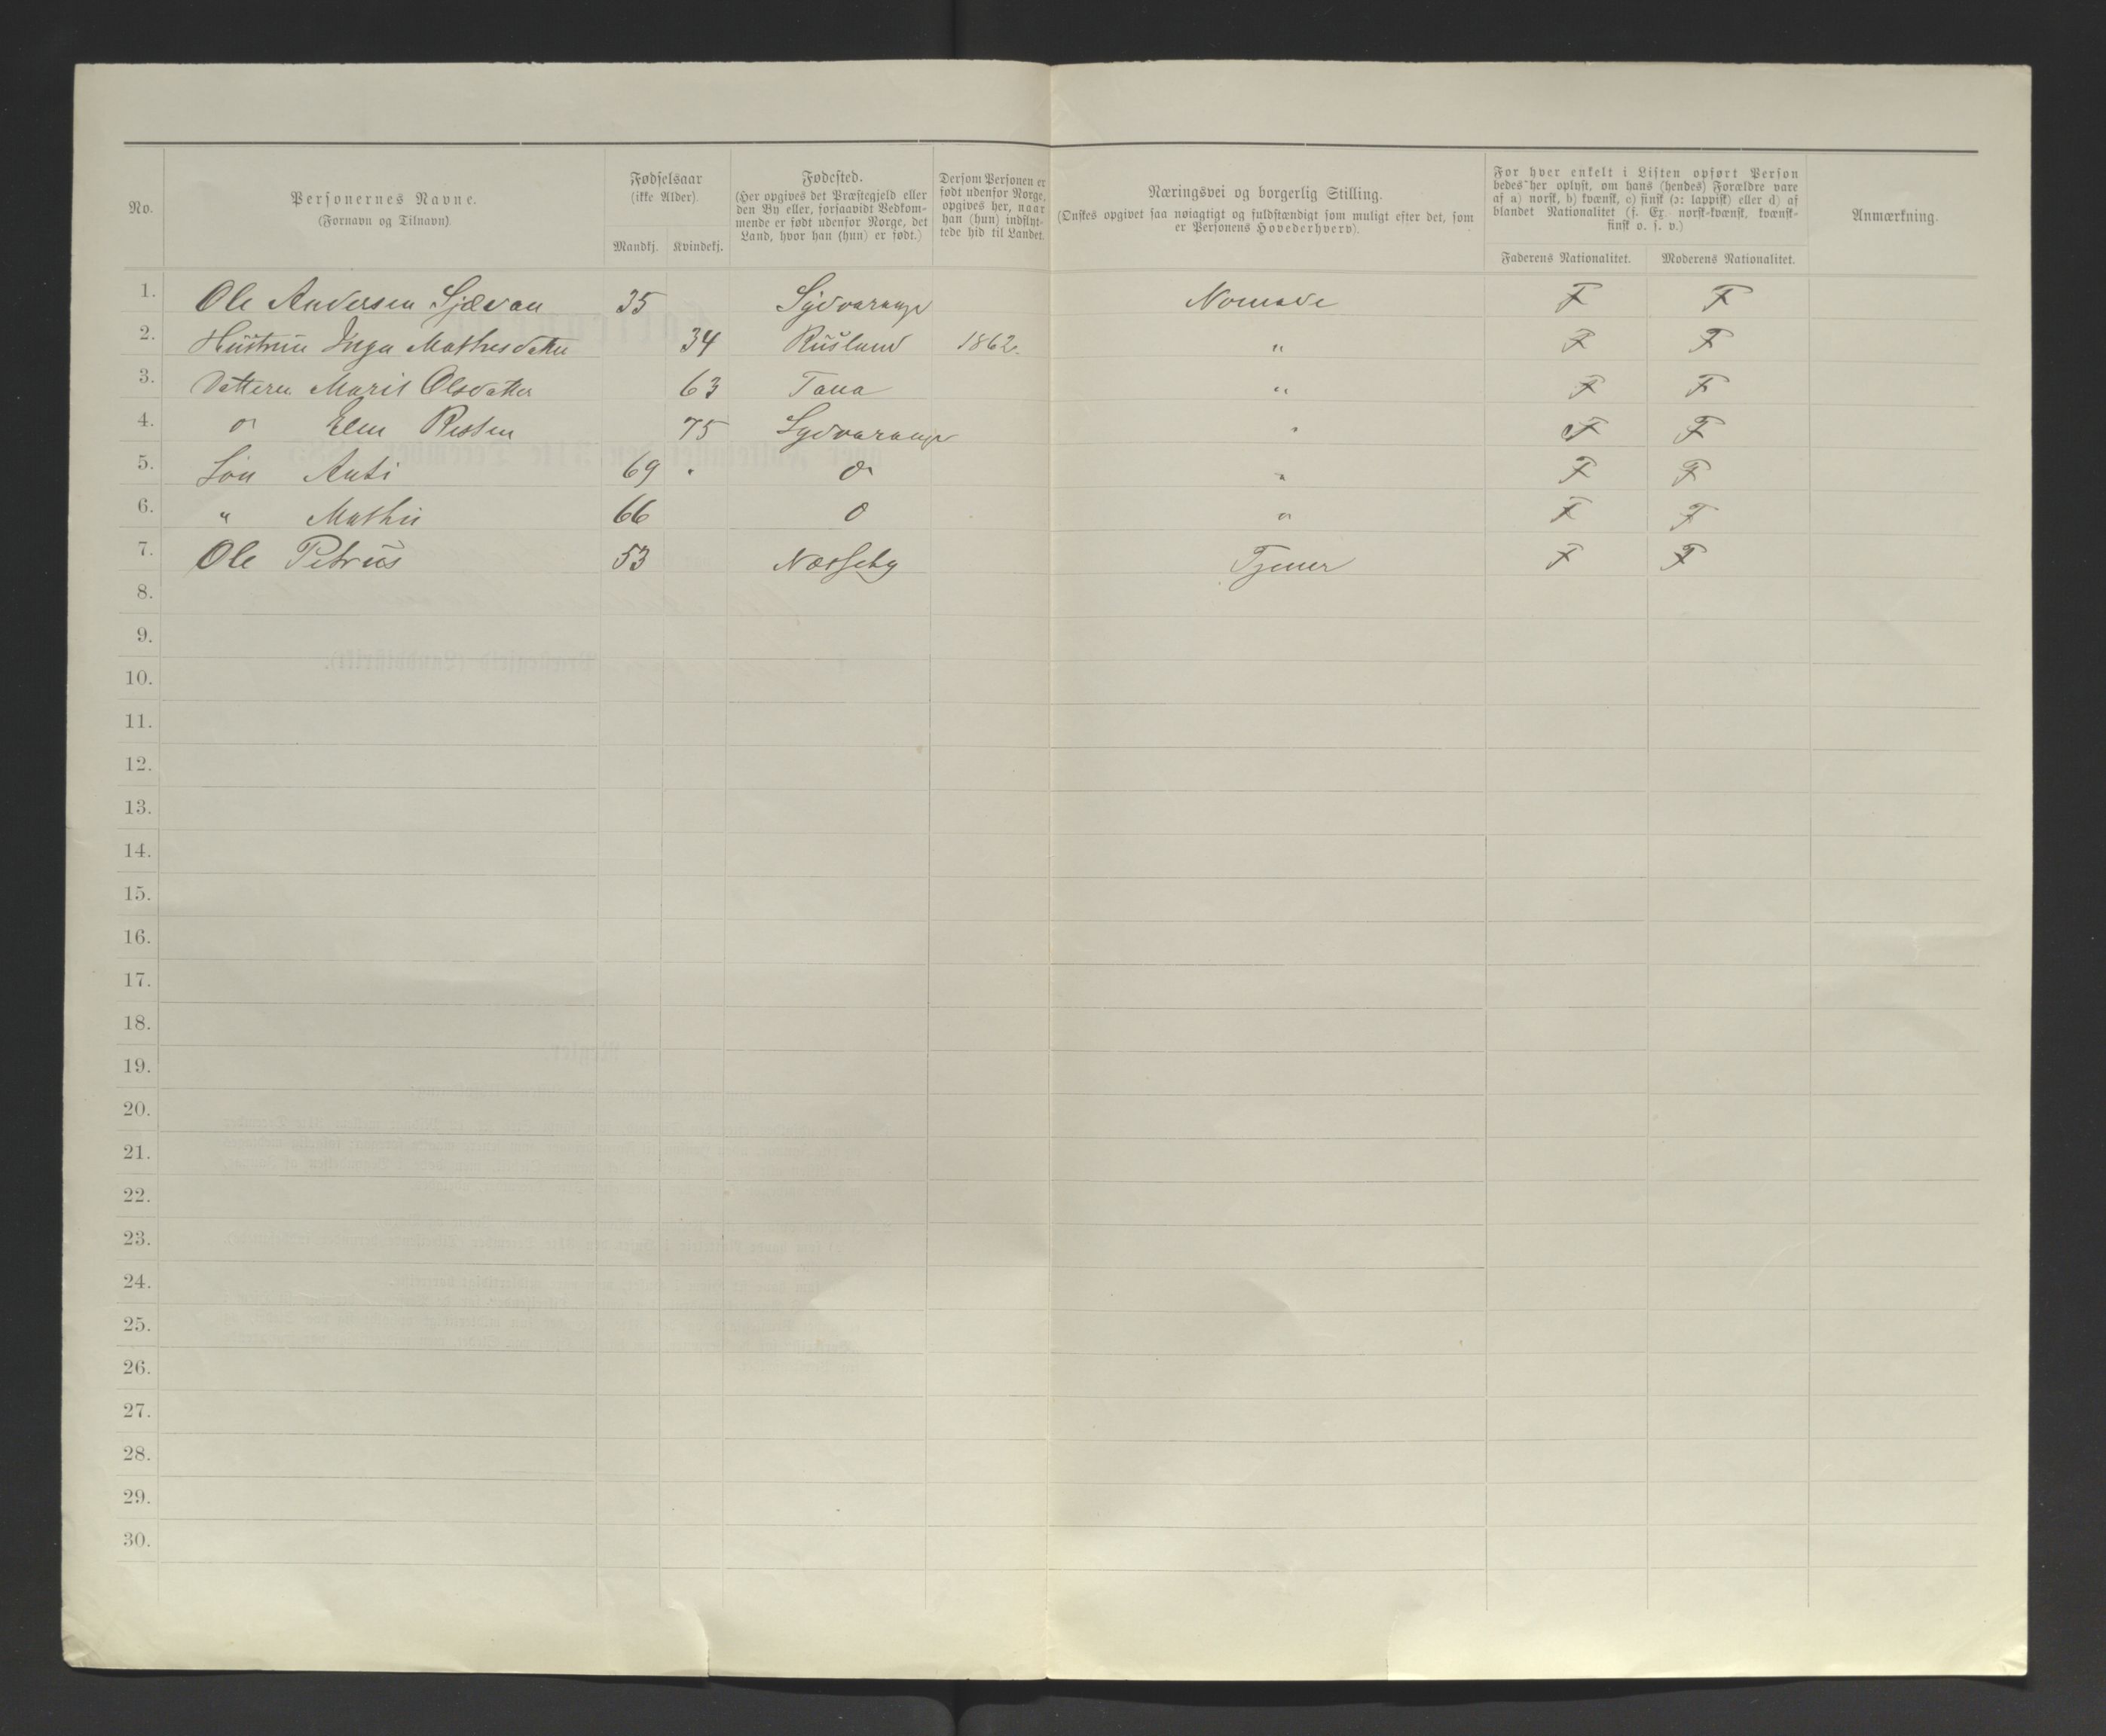 No.
Personernes Navne.
(Fornavn og Tilnavn).
Fødselsaar
(ikke Alder).
Mandkj. Kvindekj.
Fødested.
(Her opgives det Præstegjeld eller
den By eller, forsaavidt Vedkom-
mende er født udenfor Norge, det
Land, hvor han (hun) er født.)
Dersom Personen er
født udenfor Norge,
opgives her, naar
han (hun) indflyt-
tede hid til Landet.
Næringsvei og borgerlig Stilling.
(Ønskes opgivet saa nøiagtigt og fuldstændigt som muligt efter det, som
er Personens Hovederhverv).
For hver enkelt i Listen opført Person
bedes her oplyst, om hans (hendes) Forældre vare
af a) norsk, b) kvænsk, c) finsk (ɔ: lappisk) eller d) af
blandet Nationalitet (f. Ex. norsk-kvænsk, kvænsk-
finsk o. s. v.)
Faderens Nationalitet. Moderens Nationalitet.
Anmærkning.
1. Ole Andersen Sjævan 35 Sydvaranger Nomade F F
2. Hustrue Inga Mathesdatter 34 Rusland 1862. " F F
3. Datteren Marit Olsdatter 63 Tana " F F
4. " Elen 75 Sydvaranger " F F
5. Søn Anti 69 " " F F
6. " Mathis 66 " " F F
7. Ole Petrus 53 Næsseby Tjener F F
8.
9.
10.
11.
12.
13.
14.
15.
16.
17.
18.
19.
20.
21.
22.
23.
24.
25.
26.
27.
28.
29.
30.